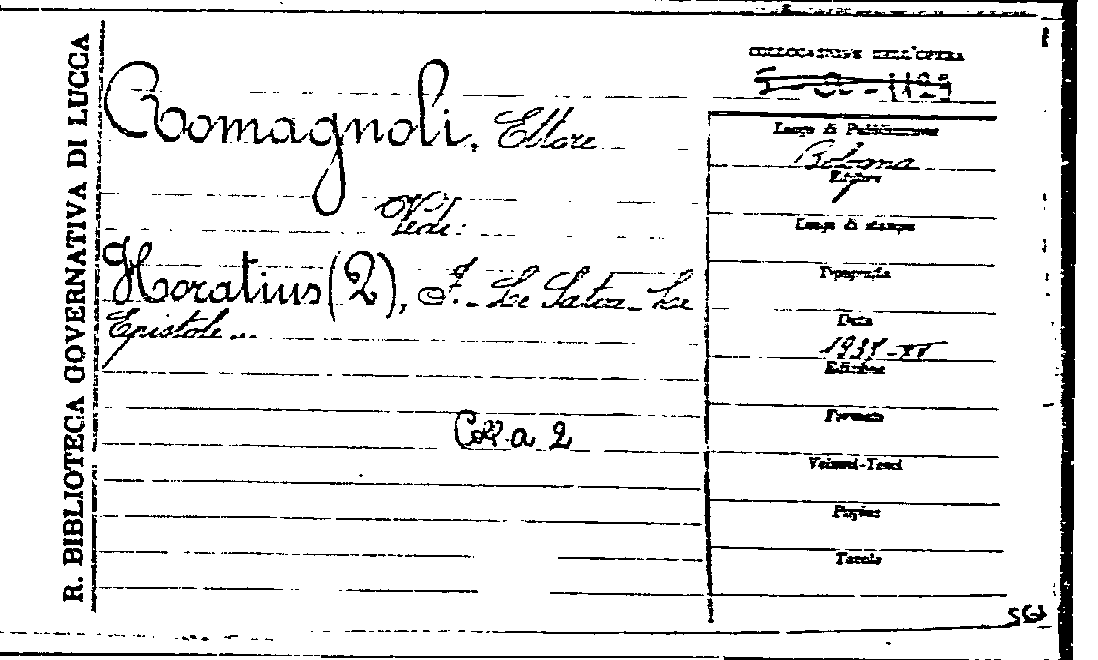 R. BIBLIOTECA GOVERNATIVA DI LUCCA
Romagnoli, Ettore
Vedi:
Horatius (2), F. - Le Satire - Le
Epistole ...
Coll. a 2
COLLOCAZIONE DELL'OPERA
Luogo di Pubblicazione
Bologna
Editore
Luogo di stampa
Tipografia
Data
Edizione
Formato
Volumi-Tomi
Pagine
Tavole